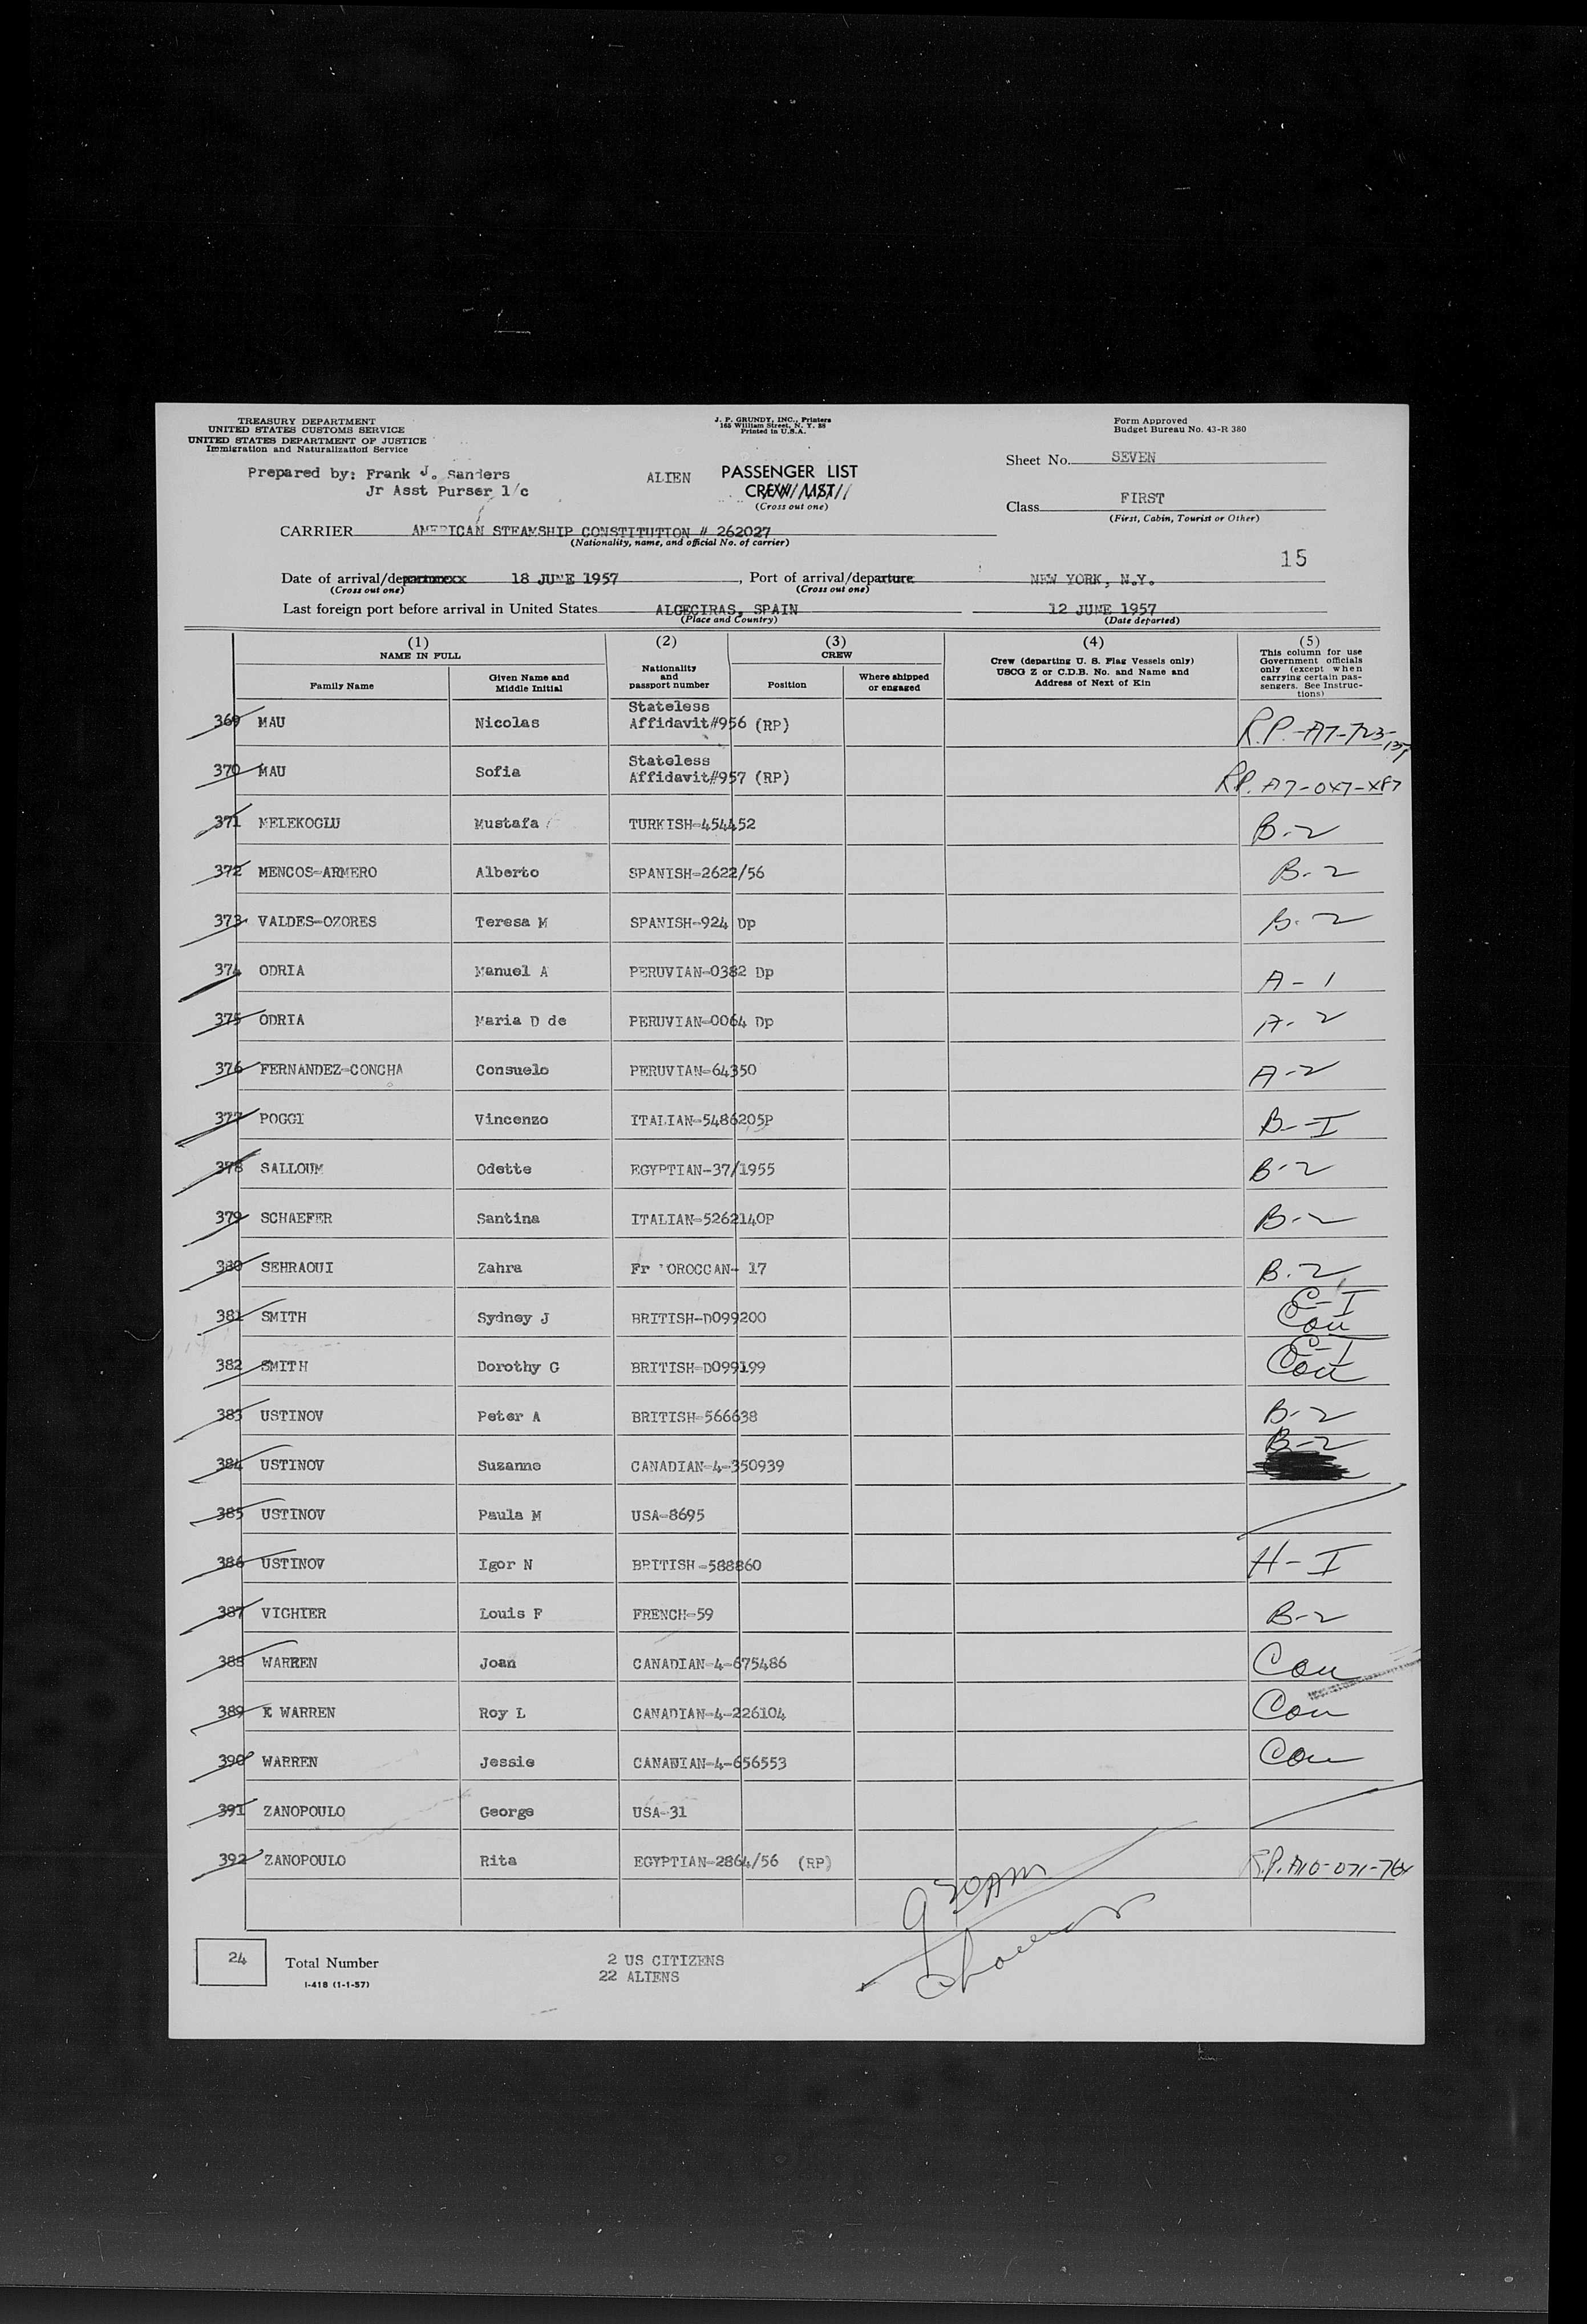 TREASURY DEPARTMENT
UNITED STATES CUSTOMS SERVICE
UNITED STATES DEPARTMENT OF JUSTICE
Immigration and Naturalization Service
J. P. GRUNDY, INC., Printers
165 William Street, N. Y. 38
Printed in U.S.A.
Form Approved
Budget Bureau No. 43-R 380
Prepared by: Frank J. Sanders
Jr Asst Purser 1/c
ALIEN PASSENGER LIST
CREW LIST
(Cross out one)
Sheet No. SEVEN
Class FIRST
(First, Cabin, Tourist or Other)
CARRIER AMERICAN STEAMSHIP CONSTITUTION # 262027
(Nationality, name, and official No. of carrier)
15
Date of arrival/departure 18 JUNE 1957, Port of arrival/departure NEW YORK, N.Y.
(Cross out one) (Cross out one)
Last foreign port before arrival in United States ALGECIRAS, SPAIN 12 JUNE 1957
(Place and Country) (Date departed)
(1) NAME IN FULL
Family Name
Given Name and Middle Initial
(2) Nationality and passport number
(3) CREW
Position
Where shipped or engaged
(4) Crew (departing U. S. Flag Vessels only) USCG Z or C.D.B. No. and Name and Address of Next of Kin
(5) This column for use Government officials only (except when carrying certain passengers. See Instructions)
369 MAU Nicolas Stateless Affidavit#956 (RP) R.P.-A7-723-
370 MAU Sofia Stateless Affidavit#957 (RP) R.P. A7-
371 MELEKOGLU Mustafa TURKISH-454452 B-2
372 MENCOS-ARMERO Alberto SPANISH-2622/56 B-2
373 VALDES-OZORES Teresa M SPANISH-924 Dp B-2
374 ODRIA Manuel A PERUVIAN-0382 Dp A-1
375 ODRIA Maria D de PERUVIAN-0064 Dp A-2
376 FERNANDEZ-CONCHA Consuelo PERUVIAN-64350 A-2
377 POGGI Vincenzo ITALIAN-5486205P B-I
378 SALLOUM Odette EGYPTIAN-37/1955 B-2
379 SCHAEFER Santina ITALIAN-5262140P B-2
380 SEHRAOUI Zahra Fr OROCCAN- 17 B-2
381 SMITH Sydney J BRITISH-D099200 C-I Cou
382 SMITH Dorothy G BRITISH-D099199 C-I Cou
383 USTINOV Peter A BRITISH-566638 B-2
384 USTINOV Suzanne CANADIAN-4-350939 B-2
385 USTINOV Paula M USA-8695
386 USTINOV Igor N BRITISH-588860 H-I
387 VIGHIER Louis F FRENCH-59 B-2
388 WARREN Joan CANADIAN-4-675486 Cou
389 WARREN Roy L CANADIAN-4-226104 Cou
390 WARREN Jessie CANADIAN-4-656553 Cou
391 ZANOPOULO George USA-31
392 ZANOPOULO Rita EGYPTIAN-2864/56 (RP) R.P. A10-071-764
9 30AM
24 Total Number
I-418 (1-1-57)
2 US CITIZENS
22 ALIENS